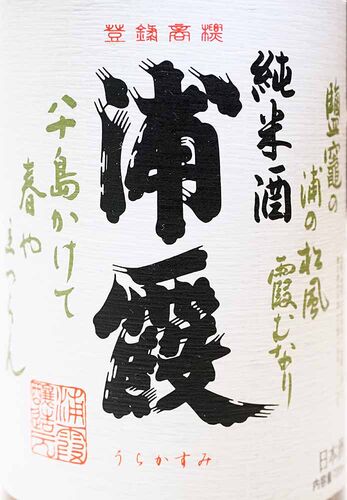 登録商標
純米酒
浦霞
うらかすみ
鹽竈の
浦の松風
霞むなり
八十島かけて
春や
立つらん
浦霞
醸造元
日本酒
内容